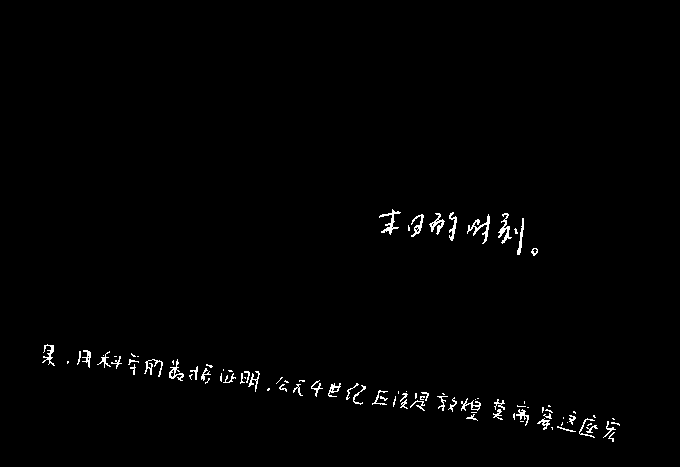 末日的时刻。
果，用科学的数据证明，公元4世纪应该是敦煌莫高窟这座宏